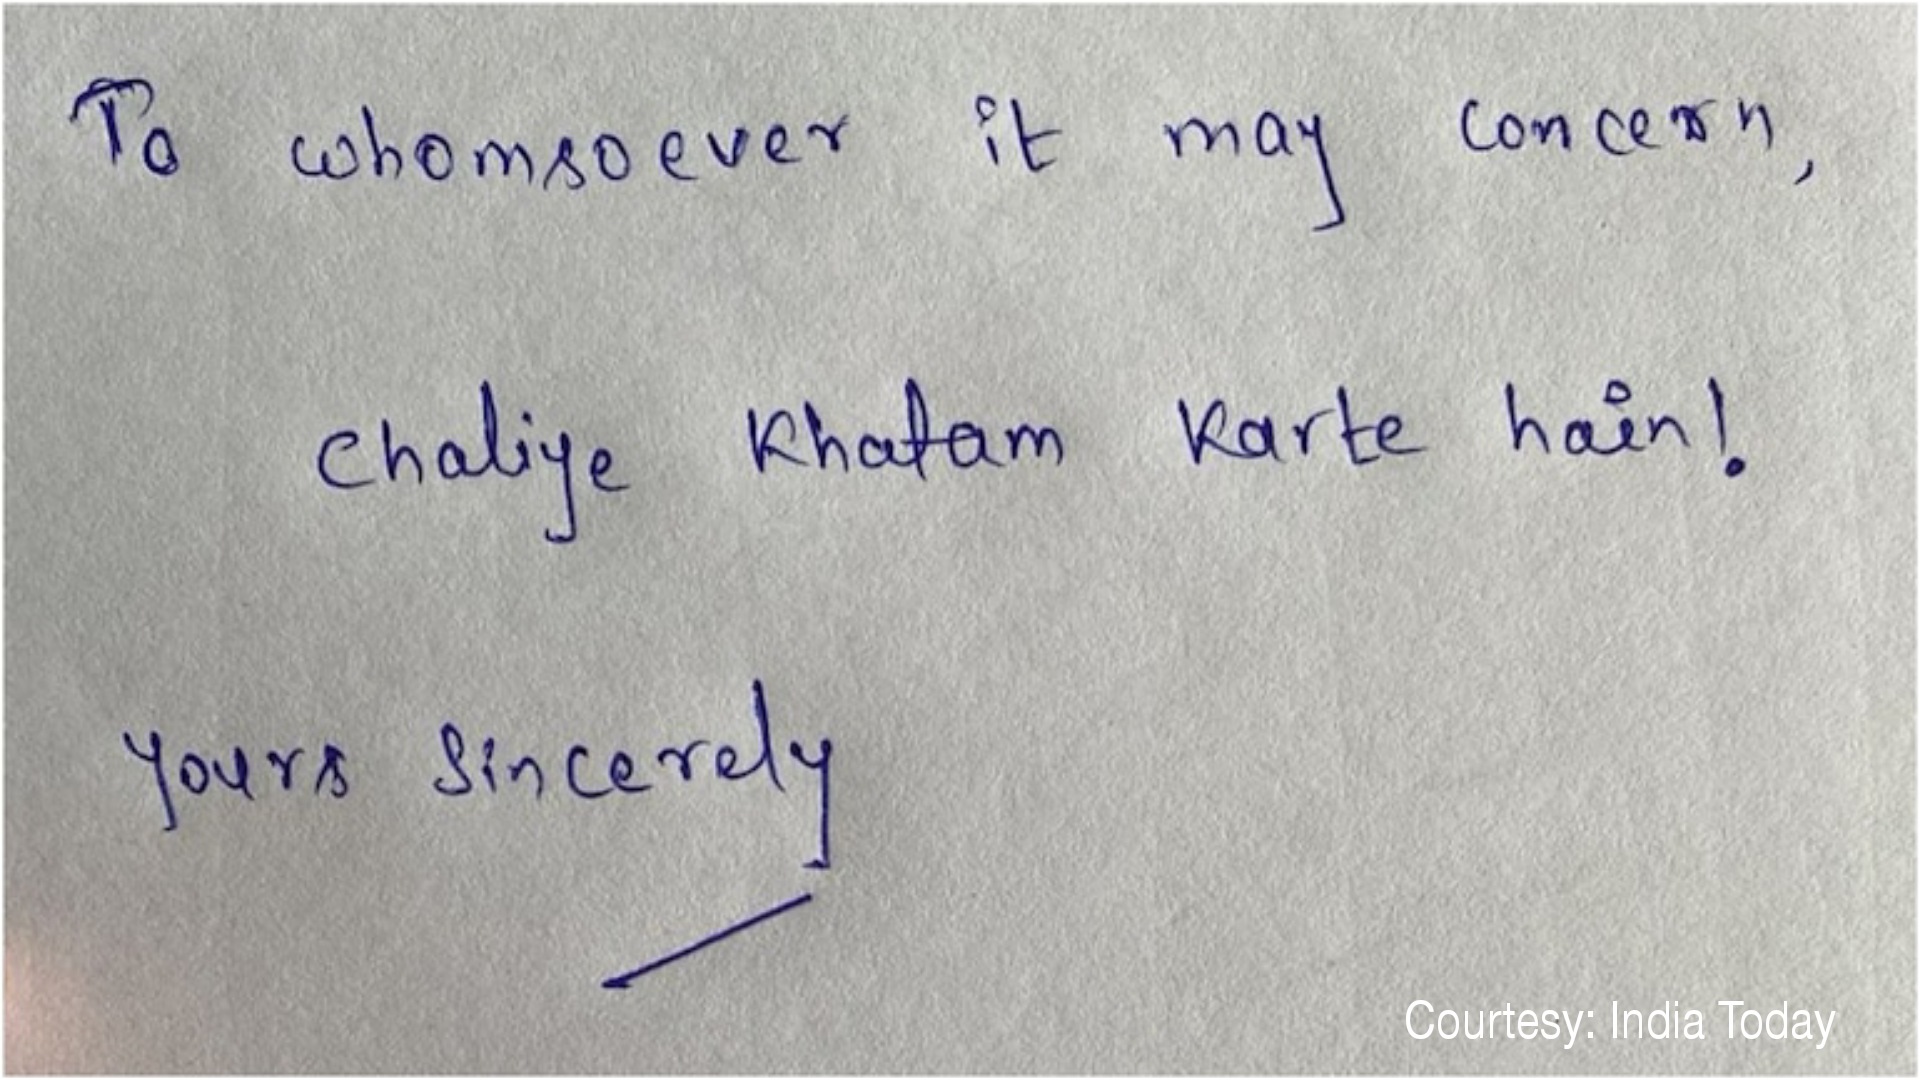 To whomsoever it may concern,
Chaliye Khatam Karte hain!
Yours Sincerely
Courtesy: India Today